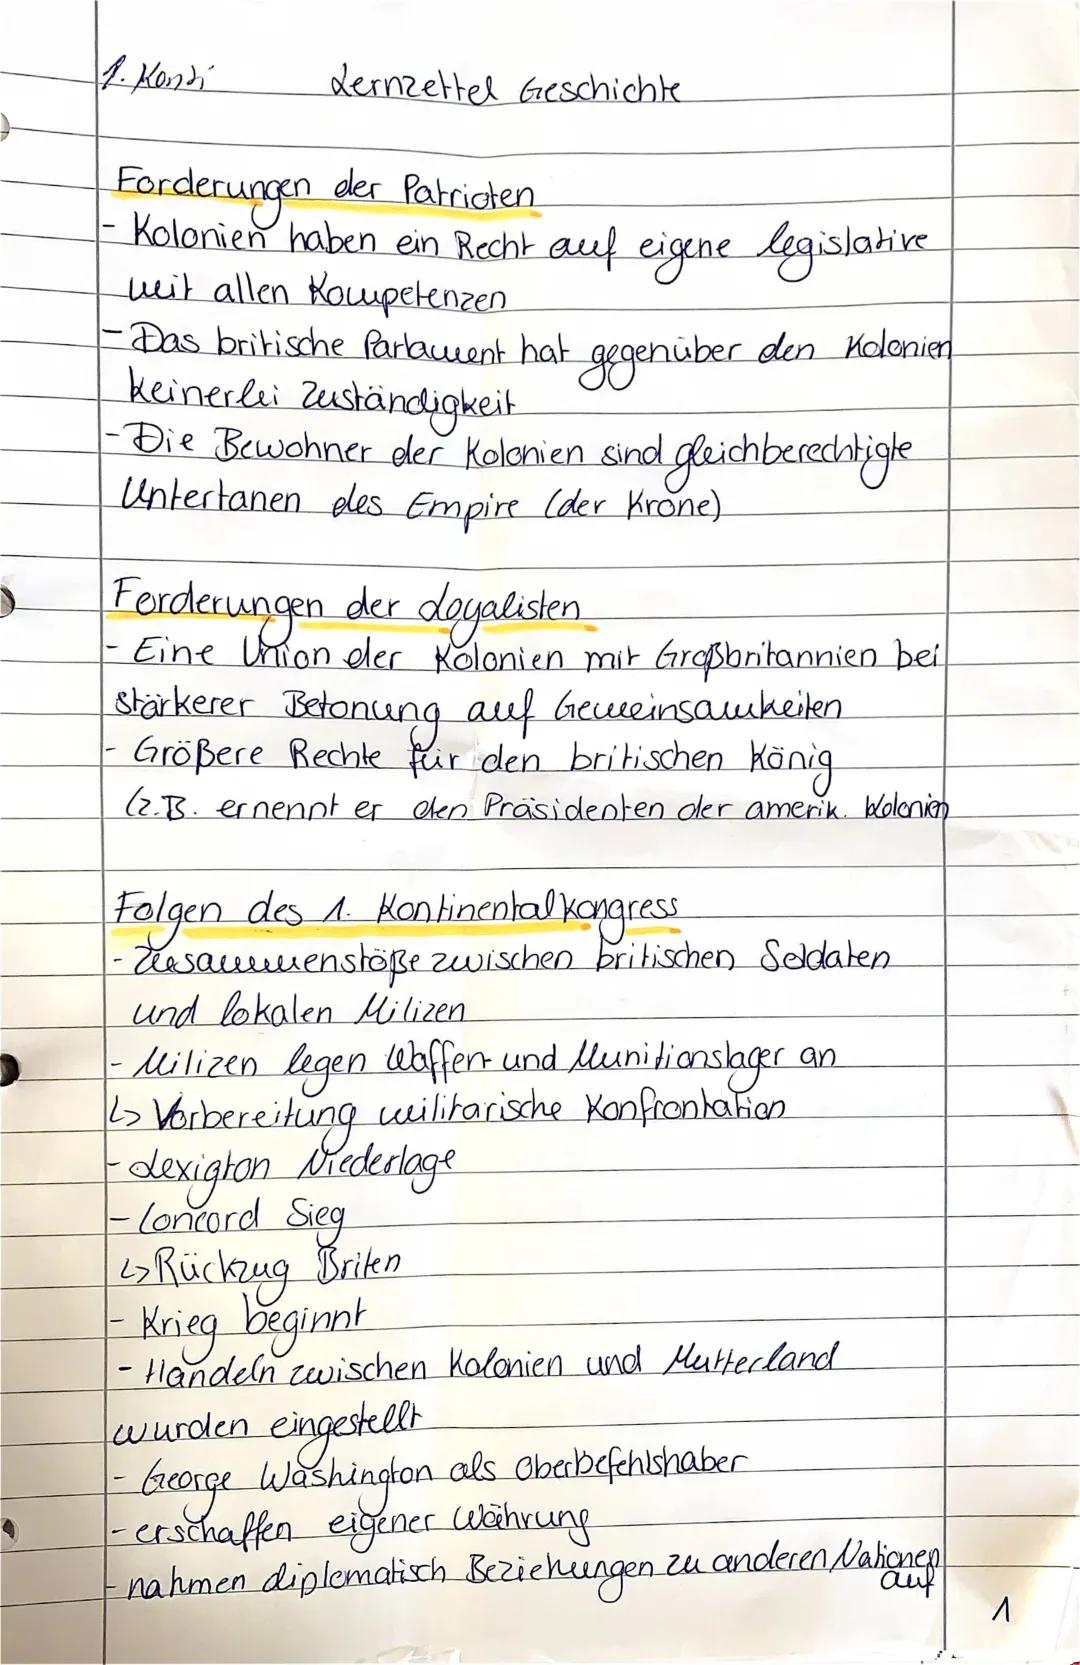 1. Konti Lernzettel Geschichte
Forderungen der Patrioten
- Kolonien haben ein Recht auf eigene legislative
mit allen Kompetenzen
- Das britische Parlament hat gegenüber den Kolonien
keinerlei Zuständigkeit
- Die Bewohner der Kolonien sind gleichberechtigte
Untertanen des Empire (der Krone)
Forderungen der Loyalisten
- Eine Union der Kolonien mit Großbritannien bei
stärkerer Betonung auf Gemeinsamkeiten
- Größere Rechte für den britischen König
(z.B. ernennt er den Präsidenten der amerik. Kolonien
Folgen des 1. Kontinentalkongress
- Zusammenstöße zwischen britischen Soldaten
und lokalen Milizen
- Milizen legen Waffen- und Munitionslager an
↳ Vorbereitung militärische Konfrontation
- Lexigton Niederlage
- Concord Sieg
↳ Rückzug Briten
- Krieg beginnt
- Handeln zwischen Kolonien und Mutterland
wurden eingestellt
- George Washington als Oberbefehlshaber
- erschaffen eigener Währung
- nahmen diplomatisch Beziehungen zu anderen Nationen
auf
1